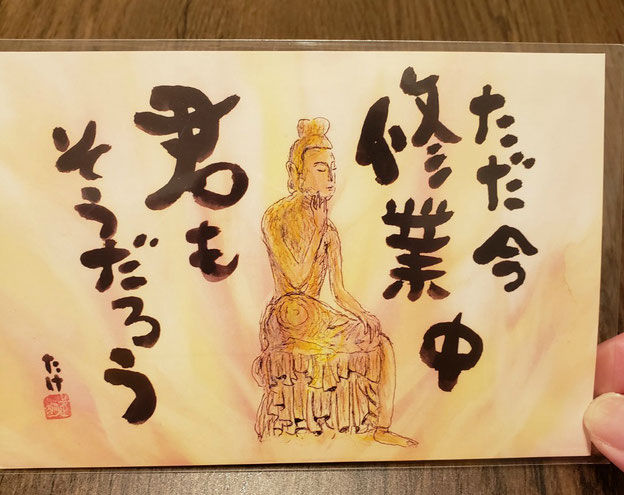 ただ今
修業中
君も
そうだろう
たけ